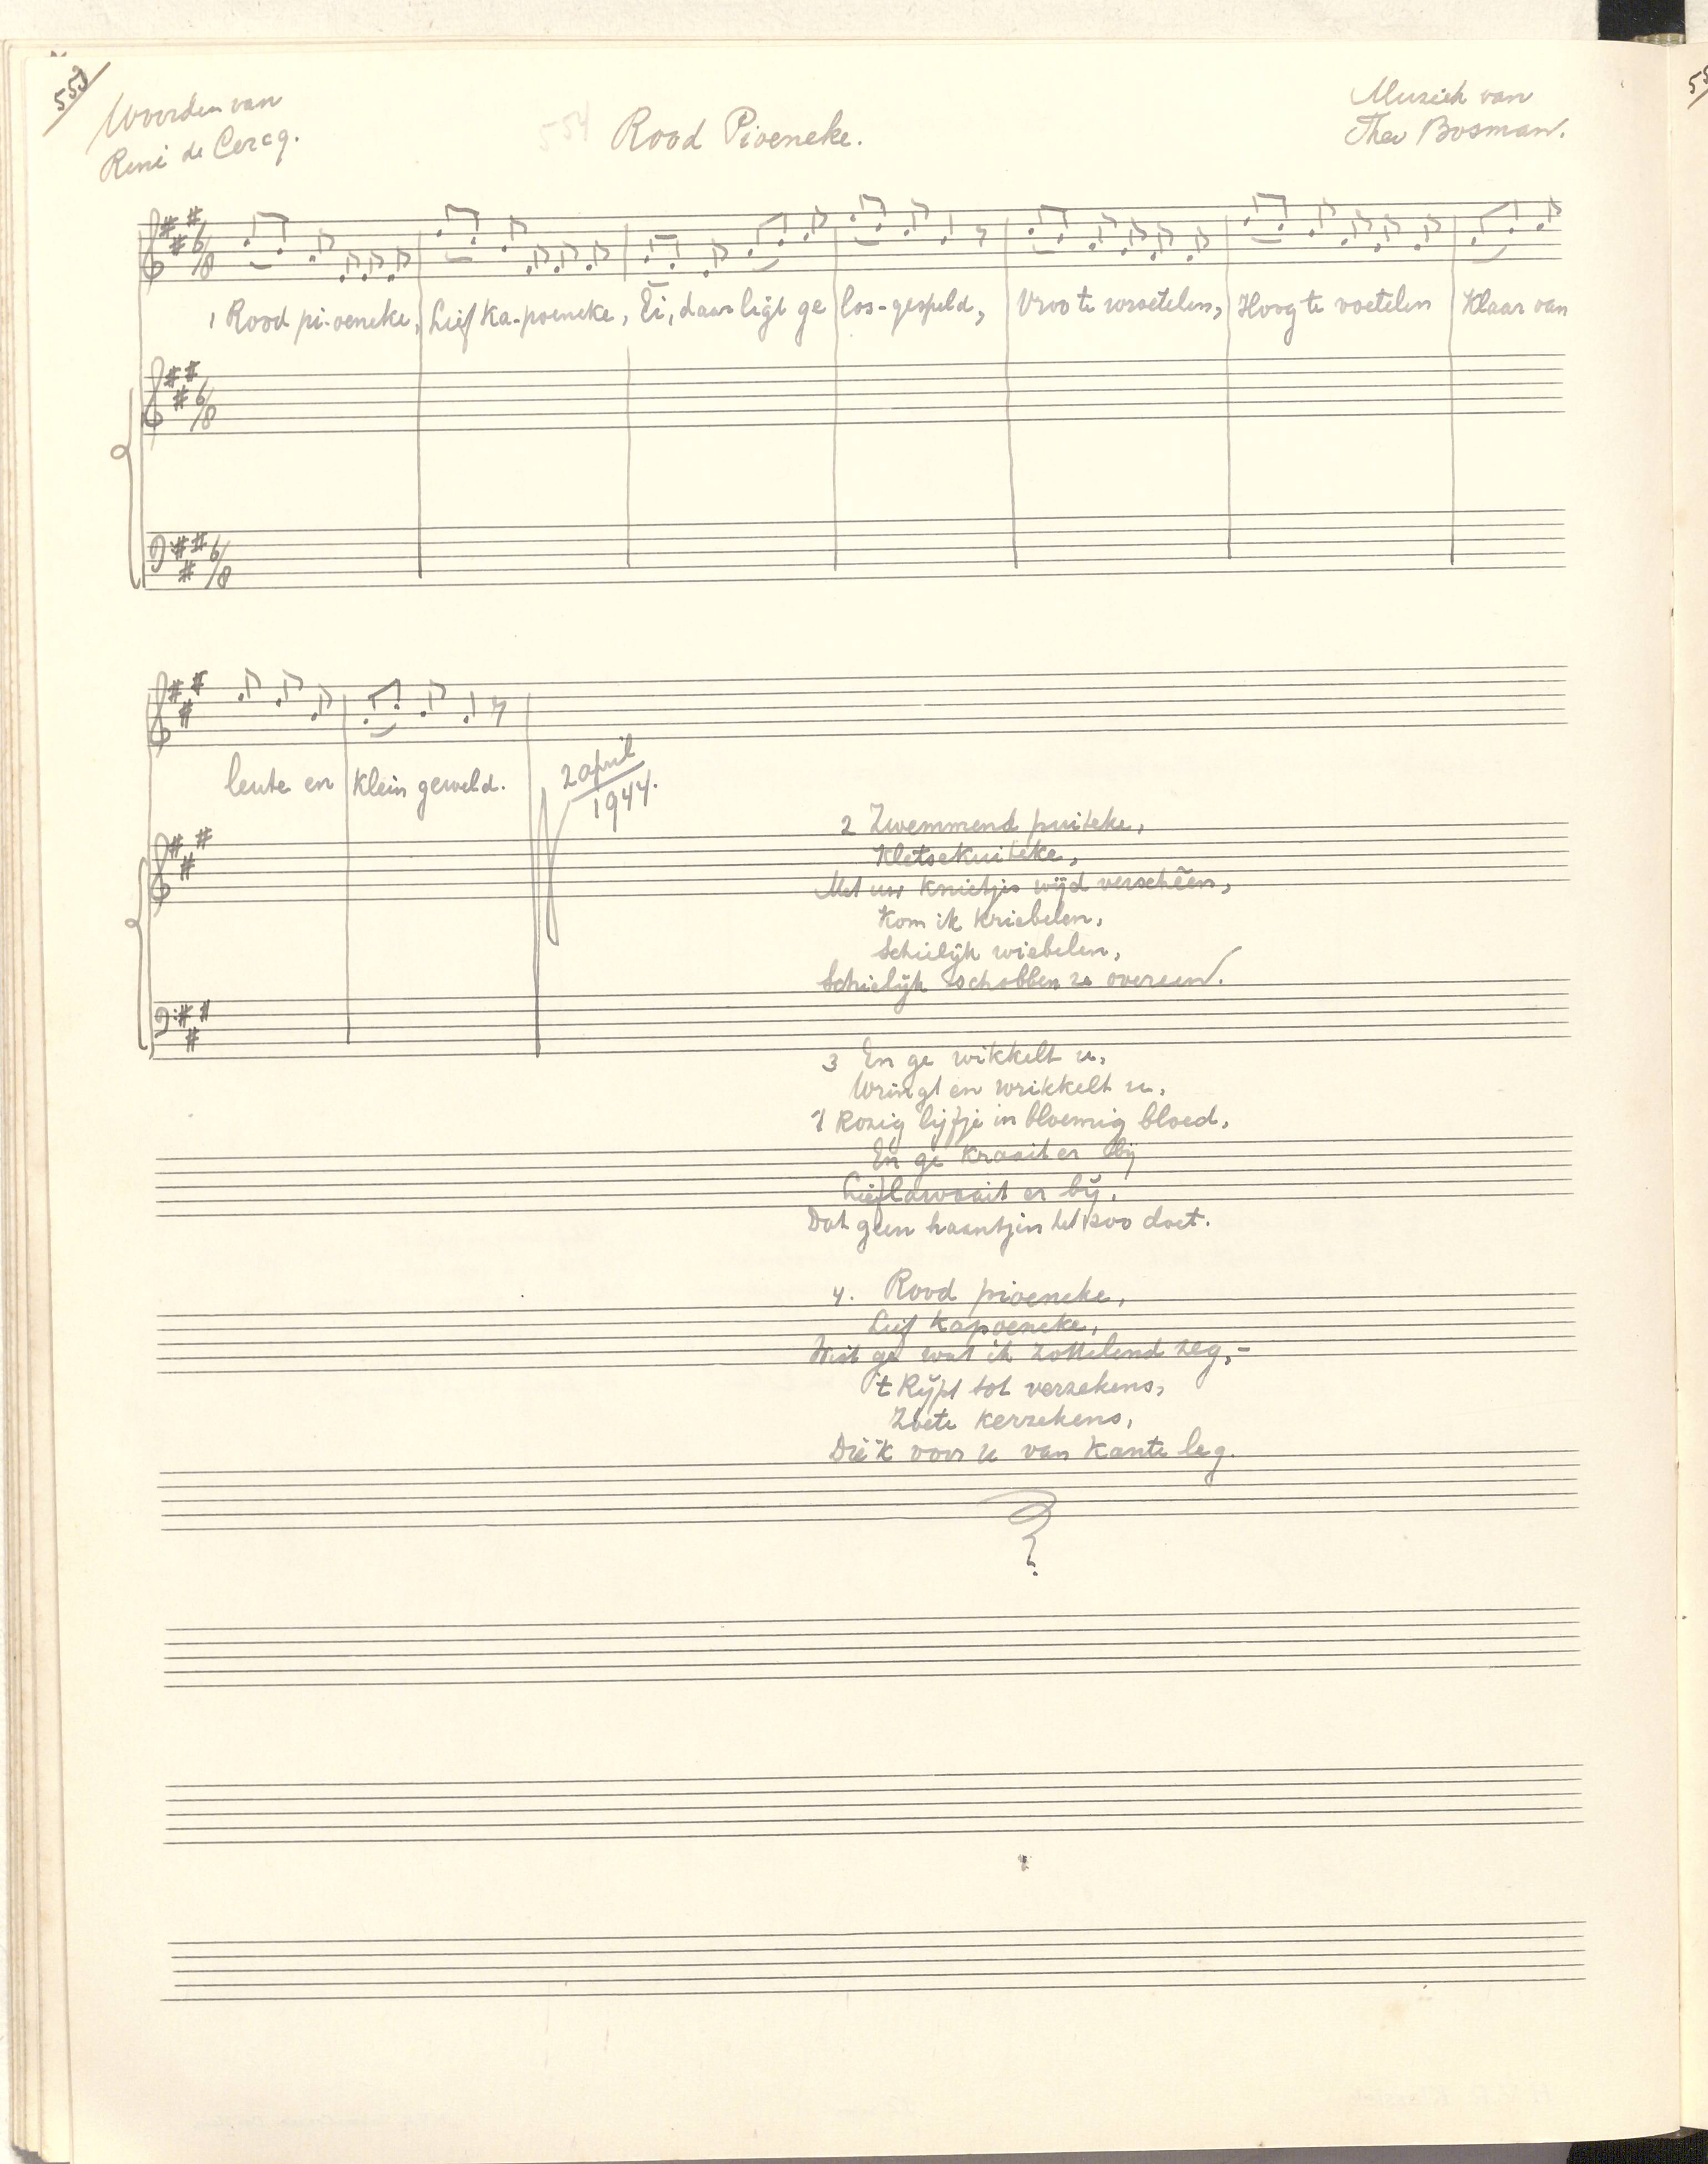 553
Woorden van
René de Cercq.
554
Rood Pioeneke.
Muziek van
Theo Bosman.
6/8
1 Rood pi-oeneke, Lief ka-poeneke, Ei, daar ligt ge los-gespeld, Vroo te worstelen, Hoog te voetelen Klaar van
6/8
6/8
leute en klein geweld.
2 april
1944.
2 Zwemmend puiteke,
Kletsekuiteke,
Met uw knietjes wijd verschêen,
Kom ik kriebelen,
Schielijk wiebelen,
Schielijk schobben ze overeen.
3 En ge wikkelt u,
Wringt en wrikkelt u,
't Rozig lijfje in bloemig bloed,
En ge kraait er bij
Lieflawaait er bij,
Dat geen haantjen het zoo doet.
4. Rood pioeneke,
Lief kapoeneke,
Wist ge wat ik zottelend zeg,-
't Rijpt tot verzekens,
Zoete kerzekens,
Die 'k voor u van kante leg.